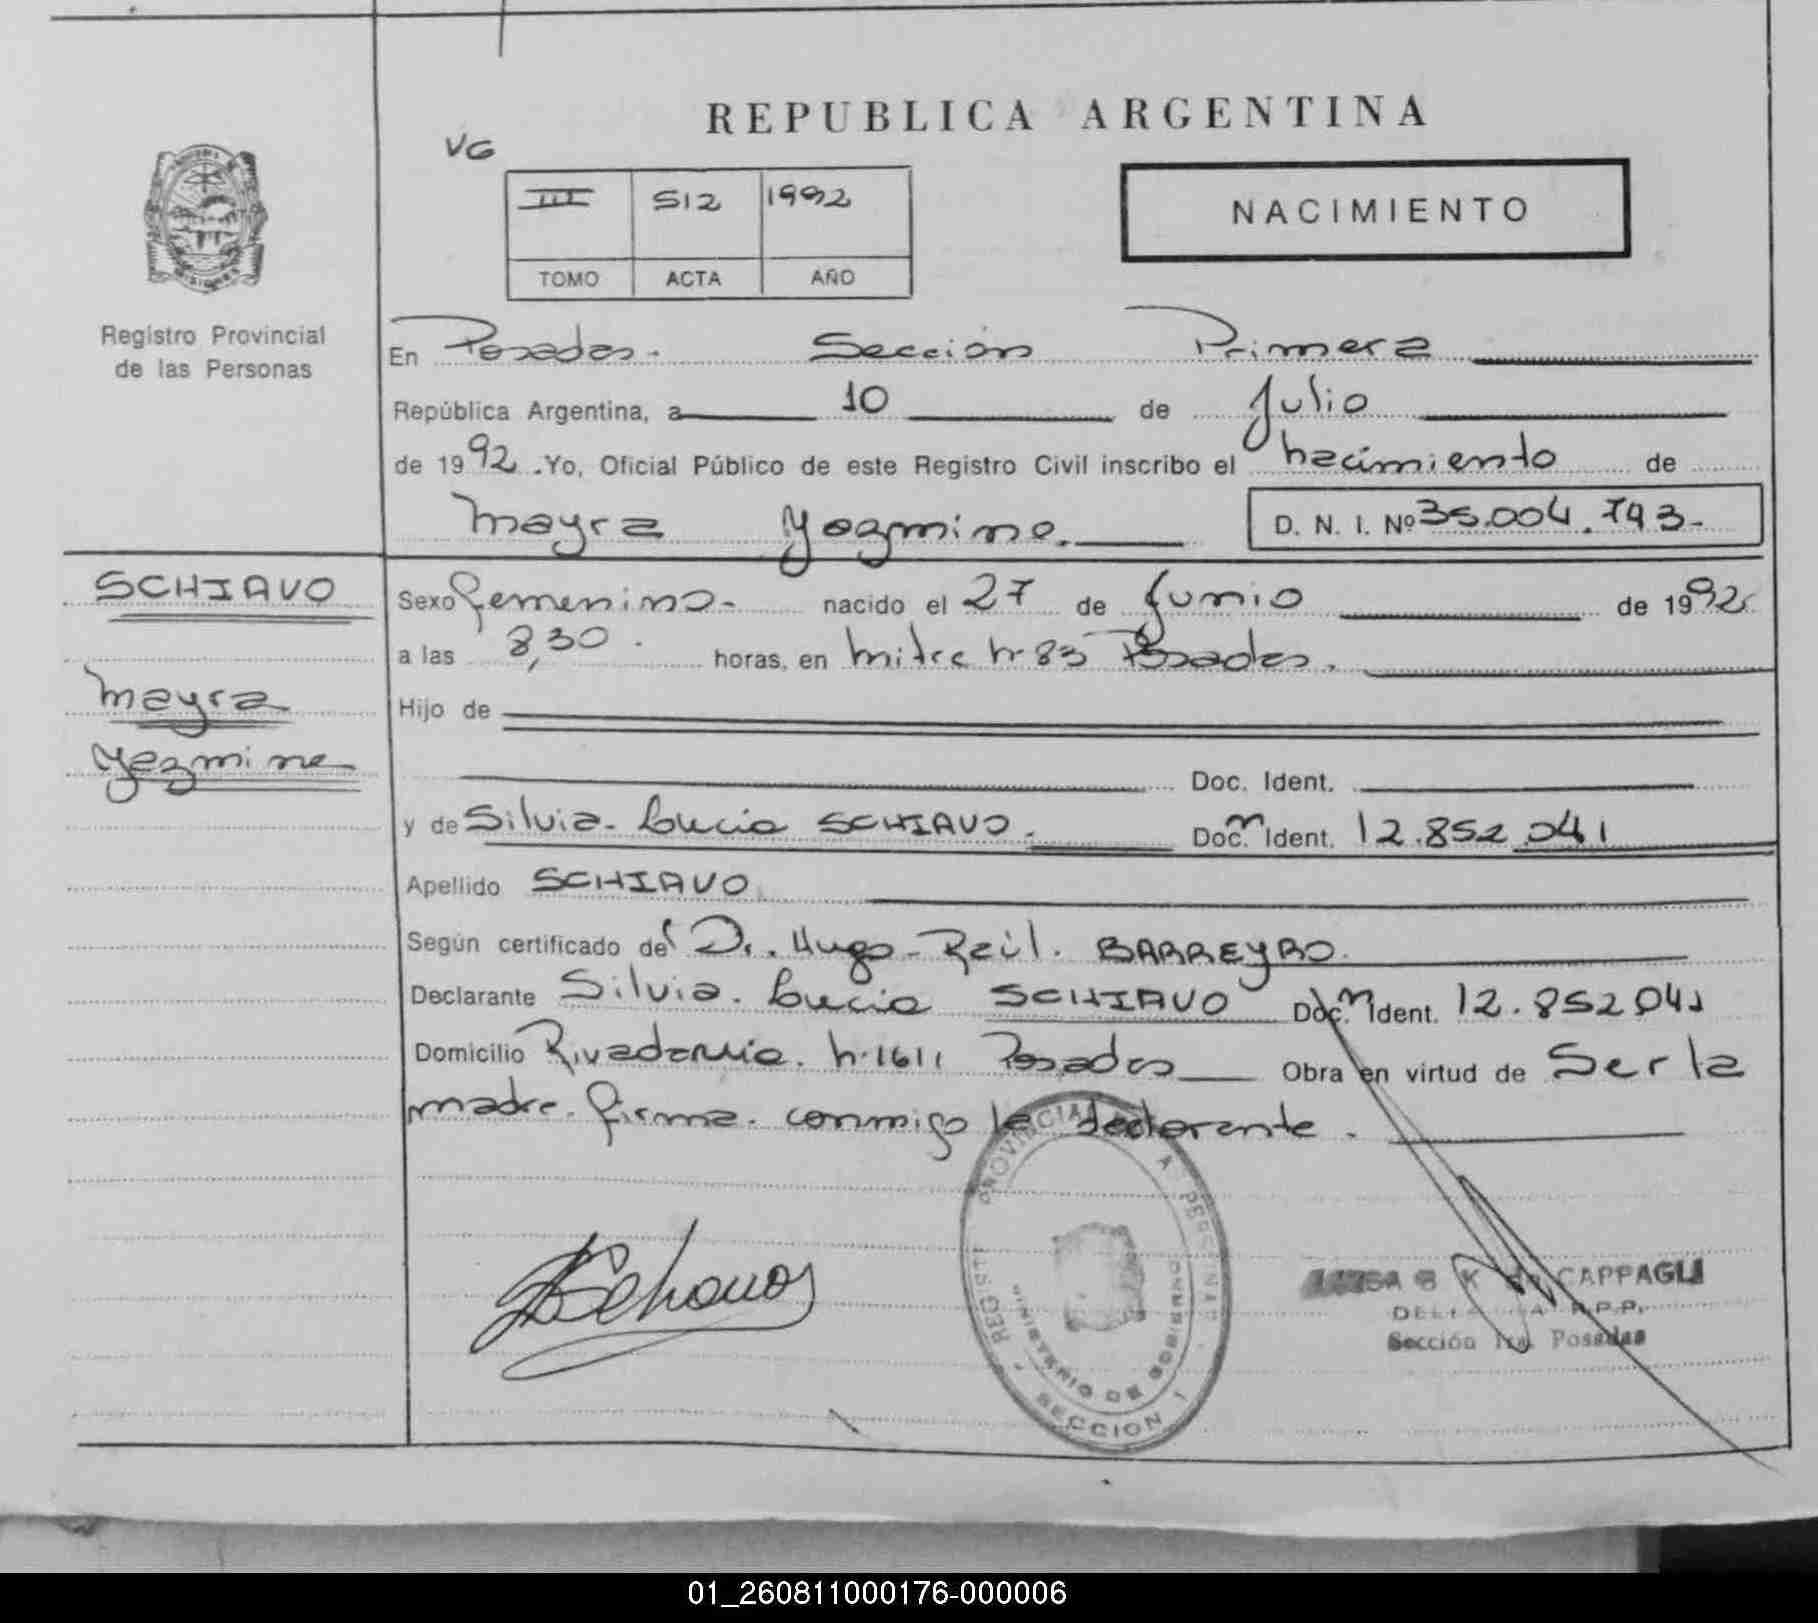 REPUBLICA ARGENTINA
VG
III 512 1992
TOMO ACTA AÑO
NACIMIENTO
Registro Provincial
de las Personas
En Posadas. Sección Primera
República Argentina, a 10 de Julio
de 1992. Yo, Oficial Público de este Registro Civil inscribo el nacimiento de
Mayra Yazmine. D. N. I. Nº 35.004.793-
SCHIAVO
Mayra
Yazmine
Sexo femenino- nacido el 27 de Junio de 1992
a las 8,30. horas, en Mitre n. 83 Posadas.
Hijo de
Doc. Ident.
y de Silvia- Lucia SCHIAVO. Doc. Ident. 12.852.041
Apellido SCHIAVO
Según certificado del Dr. Hugo- Raúl. BARREYRO.
Declarante Silvia. Lucia SCHIAVO Doc. Ident. 12.852041
Domicilio Rivadavia. n. 1611 Posadas Obra en virtud de Ser la
madre. firma. conmigo la declarante.
Schiavo
PROVINCIAL PERSONAS
MINISTERIO DE GOBIERNO
SECCION 1
CAPPAGLI
R.P.P.
Sección 1ra. Posadas
01_260811000176-000006